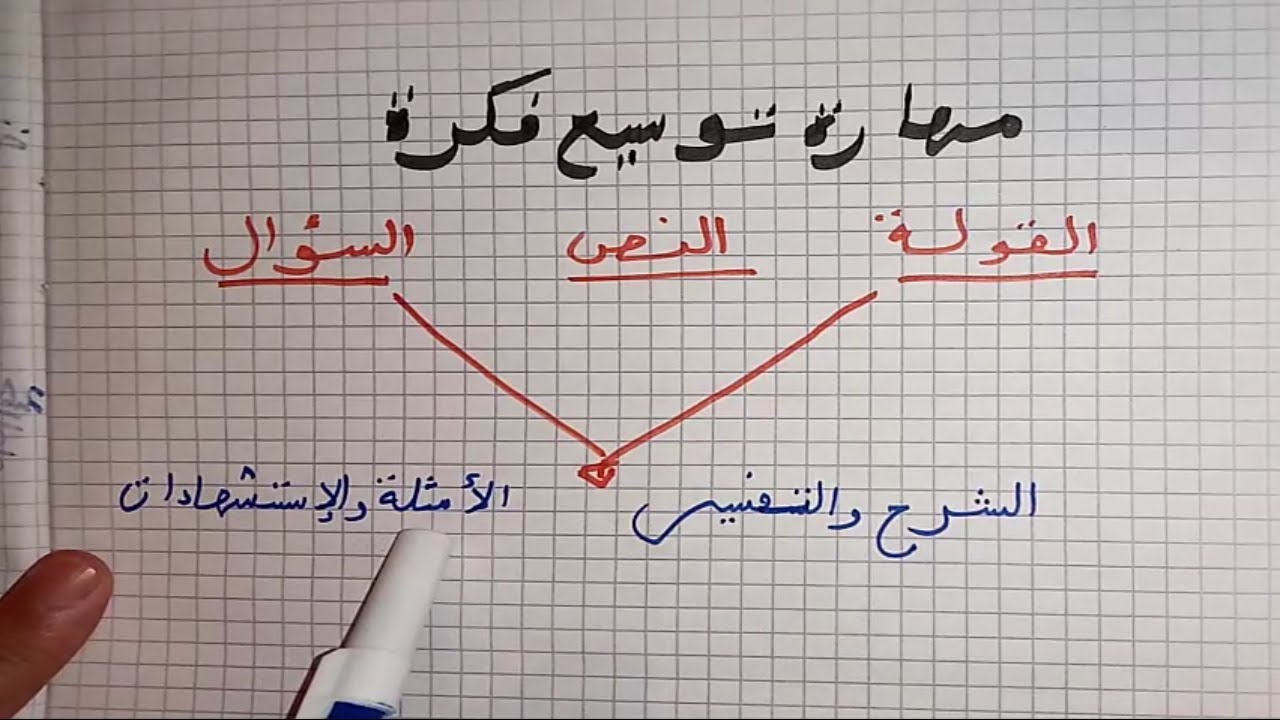 مهارة توسيع فكرة
القولة النص السؤال
الشرح والتفسير الأمثلة والإستشهادات